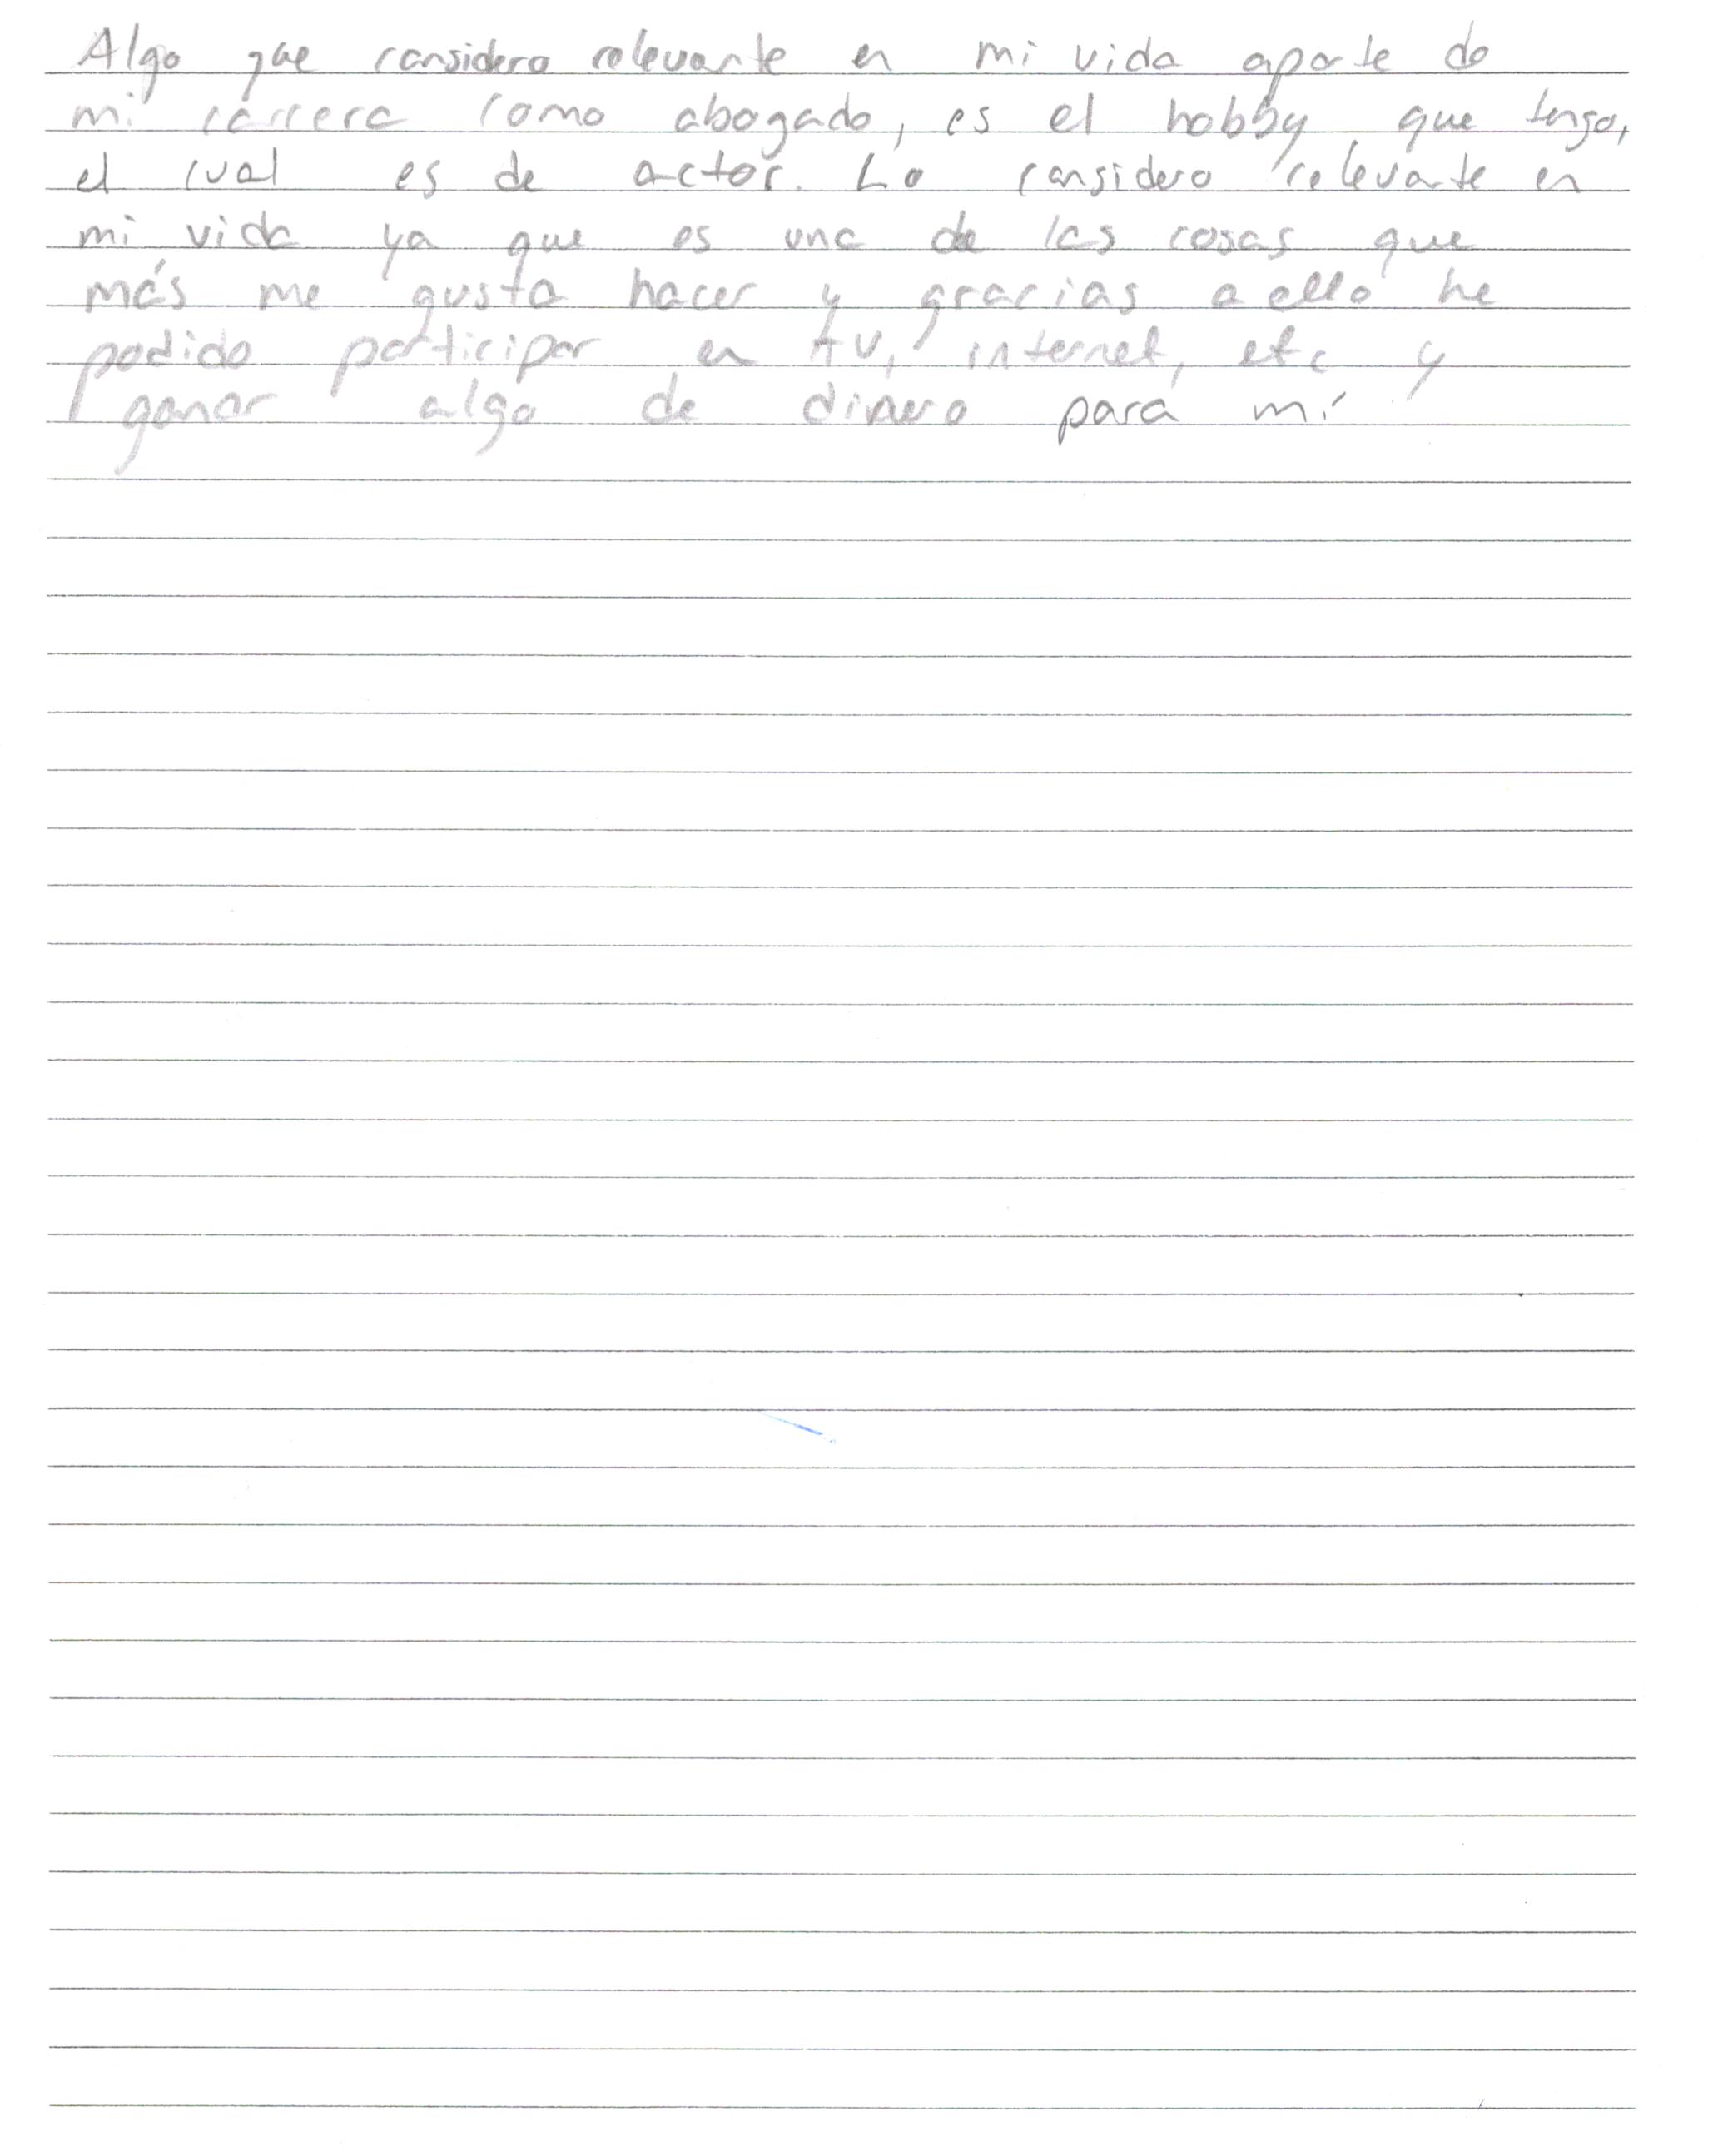 Algo que considero relevante en mi vida aparte de
mi carrera como abogado, es el hobby que tengo,
el cual es de actor. Lo considero relevante en
mi vida ya que es una de las cosas que
más me gusta hacer y gracias a ello he
podido participar en tv, internet, etc y
ganar algo de dinero para mí